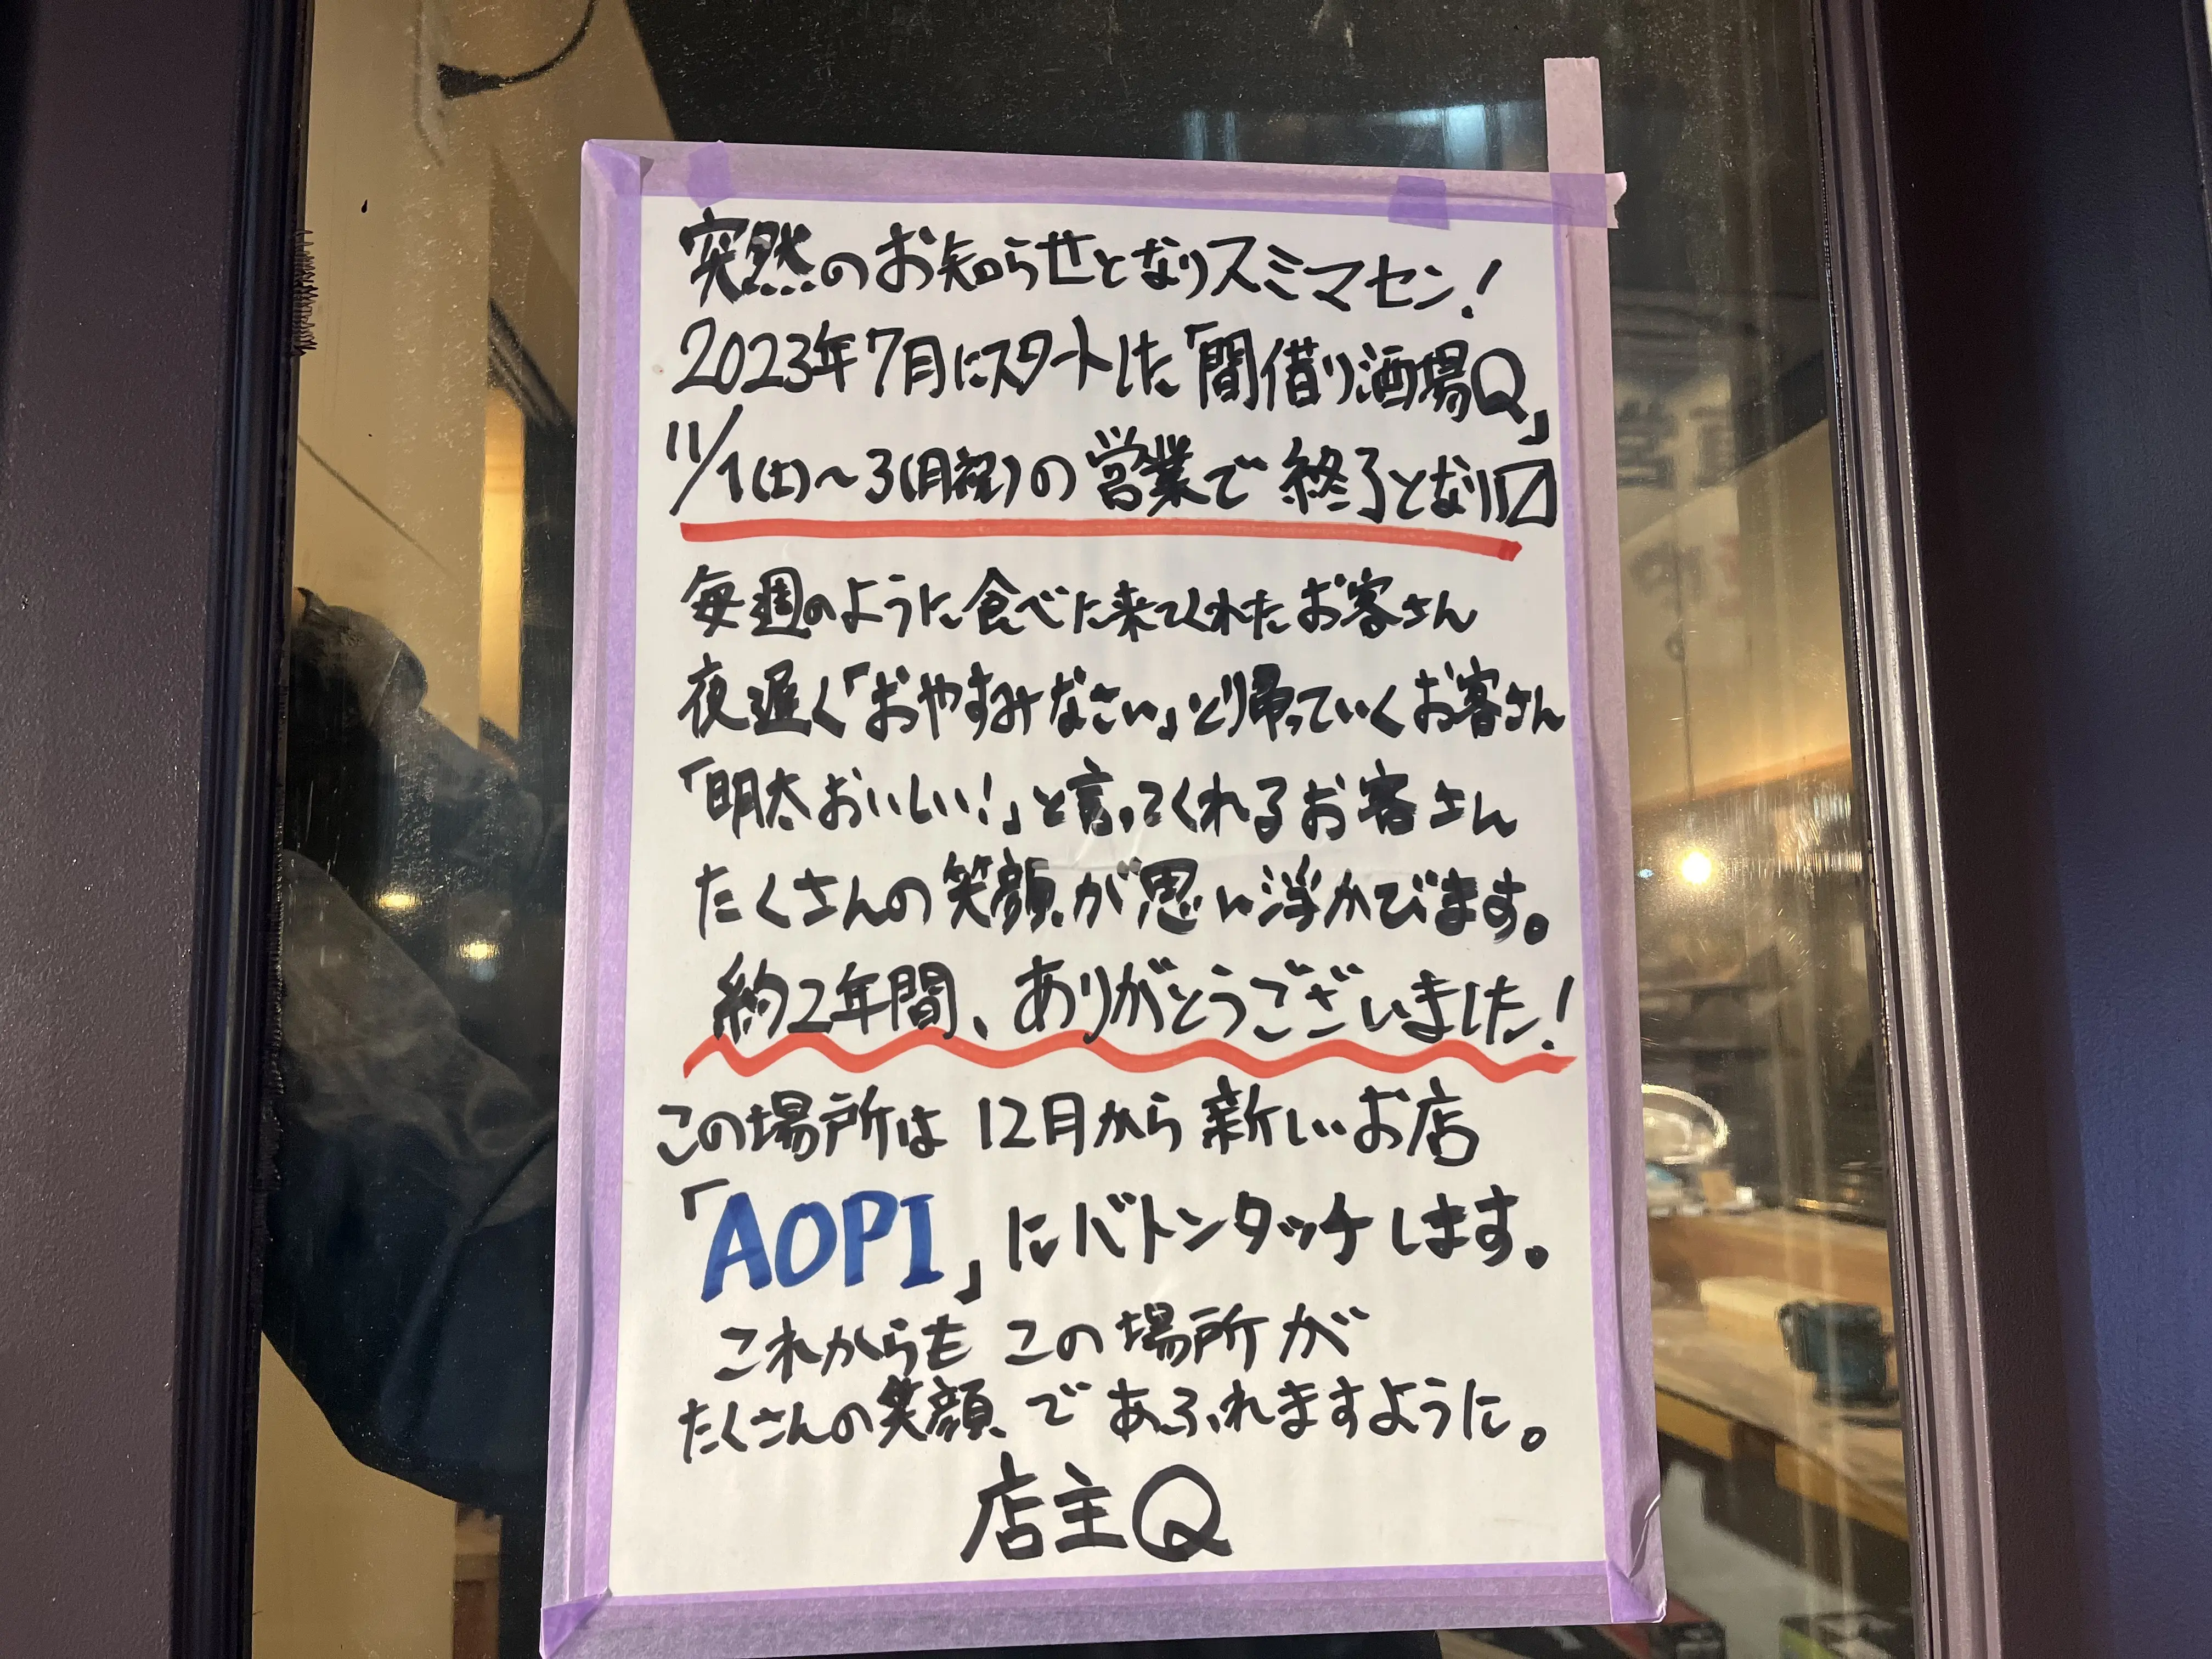 突然のお知らせとなりスミマセン!
2023年7月にスタートした「間借り酒場Q」
11/1(土)〜3(月祝)の営業で終了となり〼
毎週のように食べに来てくれたお客さん
夜遅く「おやすみなさい」と帰っていくお客さん
「明太おいしい!」と言ってくれるお客さん
たくさんの笑顔が思い浮かびます。
約2年間、ありがとうございました!
この場所は 12月から新しいお店
「AOPI」にバトンタッチします。
これからも この場所が
たくさんの笑顔であふれますように。
店主Q